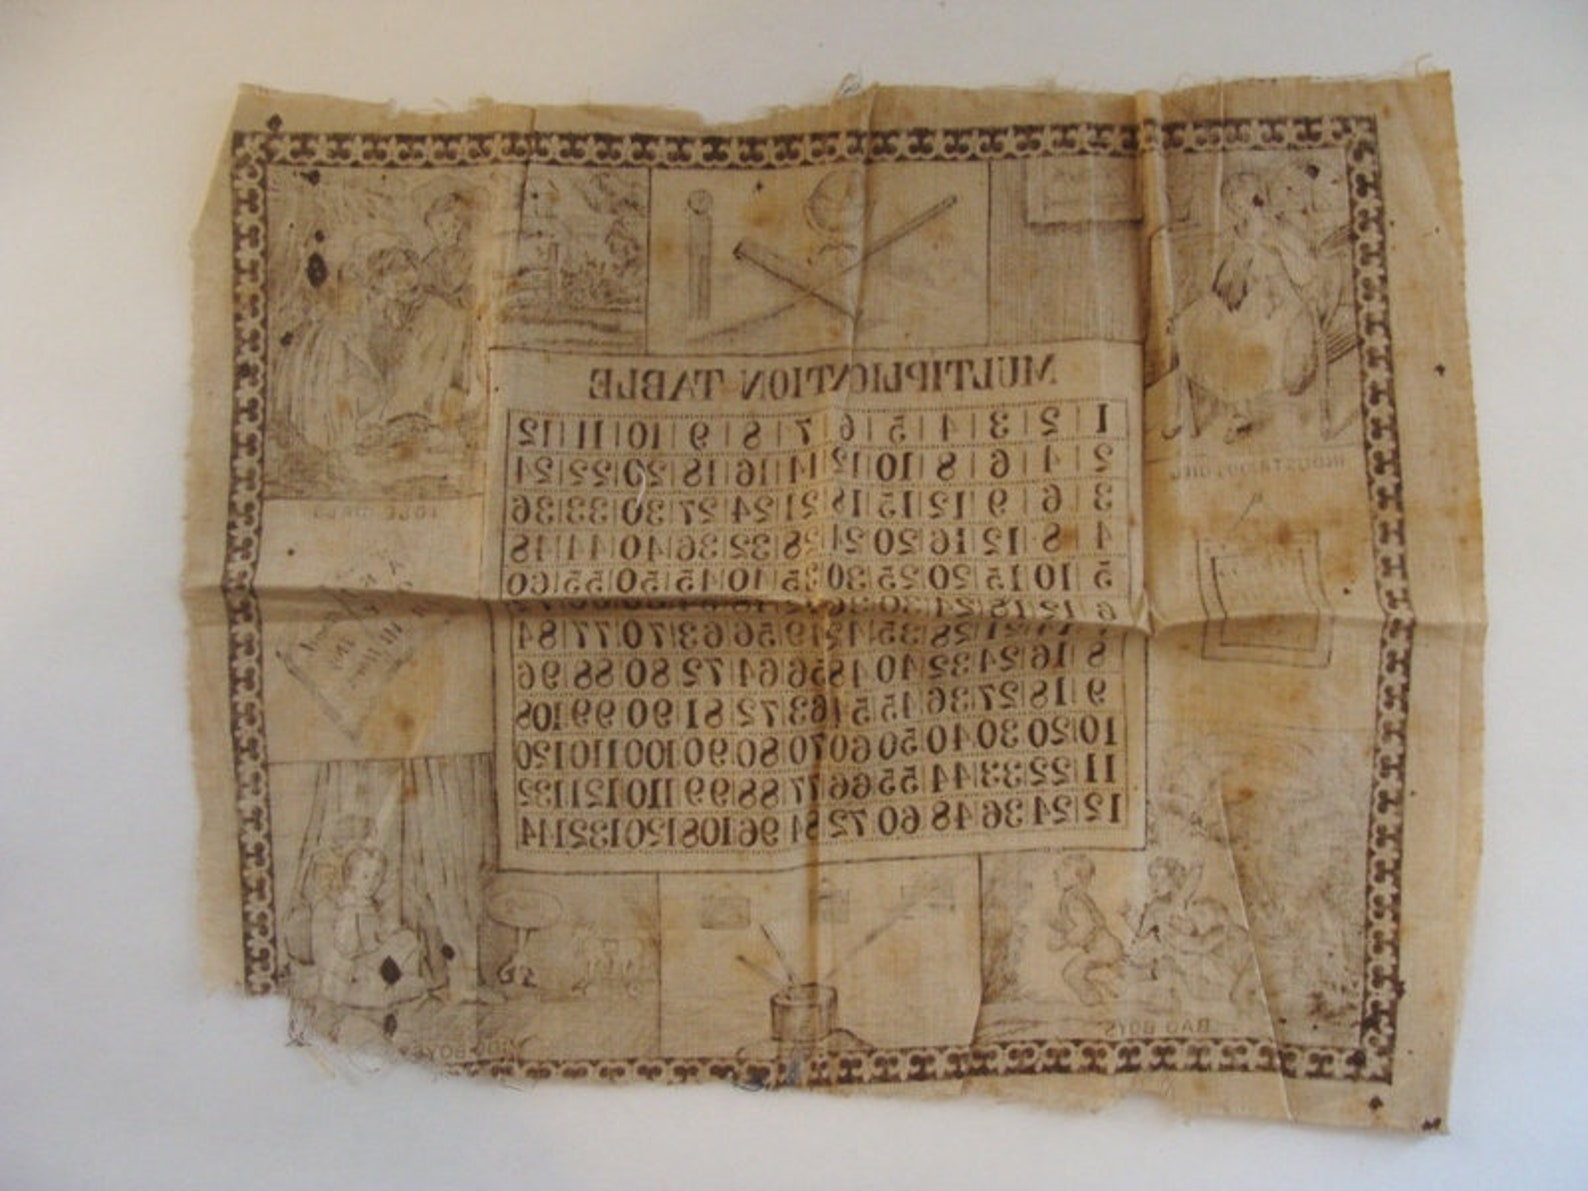 MULTIPLICATION TABLE
1 2 3 4 5 6 7 8 9 10 11 12
2 4 6 8 10 12 14 16 18 20 22 24
3 6 9 12 15 18 21 24 27 30 33 36
4 8 12 16 20 24 28 32 36 40 44 48
5 10 15 20 25 30 35 40 45 50 55 60
6 12 18 24 30 36 42 48 54 60 66 72
7 14 21 28 35 42 49 56 63 70 77 84
8 16 24 32 40 48 56 64 72 80 88 96
9 18 27 36 45 54 63 72 81 90 99 108
10 20 30 40 50 60 70 80 90 100 110 120
11 22 33 44 55 66 77 88 99 110 121 132
12 24 36 48 60 72 84 96 108 120 132 144
INDUSTRIOUS GIRL
IDLE GIRLS
BAD BOYS
BOYS